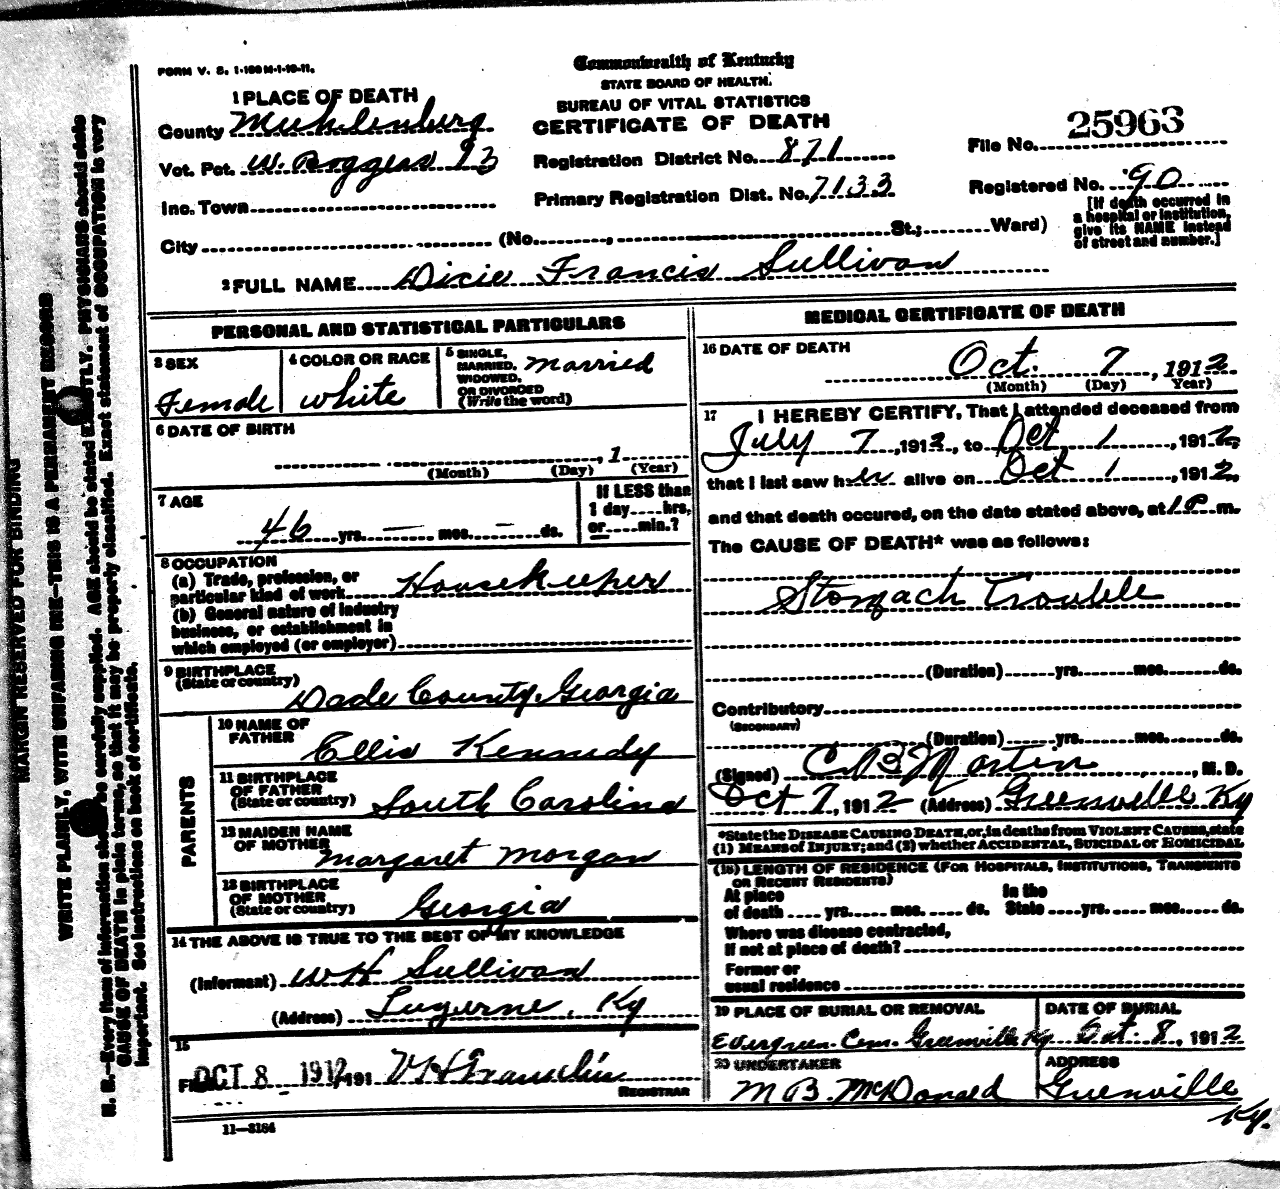 FORM V. S. 1-100 M-1-10-11.
Commonwealth of Kentucky
STATE BOARD OF HEALTH.
BUREAU OF VITAL STATISTICS
CERTIFICATE OF DEATH
1 PLACE OF DEATH
County Muhlenburg
Vot. Pct. W. Boggess 93
Inc. Town
City (No. , St.; Ward)
Registration District No. 871
Primary Registration Dist. No. 7133
File No. 25963
Registered No. 90
[If death occurred in
a hospital or institution,
give its NAME instead
of street and number.]
2 FULL NAME Dixie Francis Sullivan
PERSONAL AND STATISTICAL PARTICULARS
3 SEX
Female
4 COLOR OR RACE
White
5 SINGLE,
MARRIED,
WIDOWED,
OR DIVORCED
(Write the word)
Married
6 DATE OF BIRTH
, 1
(Month) (Day) (Year)
7 AGE
46 yrs. — mos. — ds.
If LESS than
1 day hrs.
or min.?
8 OCCUPATION
(a) Trade, profession, or
particular kind of work Housekeeper
(b) General nature of industry
business, or establishment in
which employed (or employer)
9 BIRTHPLACE
(State or country)
Dade County Georgia
PARENTS
10 NAME OF
FATHER
Ellis Kennedy
11 BIRTHPLACE
OF FATHER
(State or country)
South Carolina
12 MAIDEN NAME
OF MOTHER
Margaret Morgan
13 BIRTHPLACE
OF MOTHER
(State or country)
Georgia
14 THE ABOVE IS TRUE TO THE BEST OF MY KNOWLEDGE
(Informant) WH Sullivan
(Address) Luzerne, Ky
15
Filed OCT 8 1912 191 VH Franklin
REGISTRAR
11—3184
MEDICAL CERTIFICATE OF DEATH
16 DATE OF DEATH
Oct. 7, 1912
(Month) (Day) (Year)
17 I HEREBY CERTIFY, That I attended deceased from
July 7, 1912, to Oct 1, 1912,
that I last saw her alive on Oct 1, 1912,
and that death occured, on the date stated above, at 1 P m.
The CAUSE OF DEATH* was as follows:
Stomach Trouble
(Duration) yrs. mos. ds.
Contributory
(SECONDARY)
(Duration) yrs. mos. ds.
(Signed) C B Martin, M. D.
Oct 7, 1912 (Address) Greenville Ky
*State the DISEASE CAUSING DEATH, or, in deaths from VIOLENT CAUSES, state
(1) MEANS of INJURY; and (2) whether ACCIDENTAL, SUICIDAL or HOMICIDAL
(18) LENGTH OF RESIDENCE (FOR HOSPITALS, INSTITUTIONS, TRANSIENTS
OR RECENT RESIDENTS)
At place
of death yrs. mos. ds.
In the
State yrs. mos. ds.
Where was disease contracted,
If not at place of death?
Former or
usual residence
19 PLACE OF BURIAL OR REMOVAL
Evergreen Cem. Greenville Ky
DATE OF BURIAL
Oct. 8, 1912
20 UNDERTAKER
M B. McDonald
ADDRESS
Greenville
Ky.
MARGIN RESERVED FOR BINDING
WRITE PLAINLY, WITH UNFADING INK—THIS IS A PERMANENT RECORD
N. B.—Every item of information should be carefully supplied. AGE should be stated EXACTLY. PHYSICIANS should state
CAUSE OF DEATH in plain terms, so that it may be properly classified. Exact statement of OCCUPATION is very
important. See instructions on back of certificate.